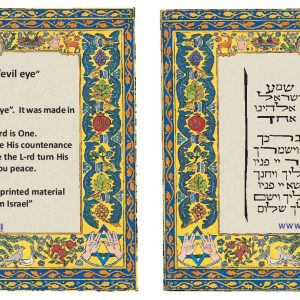 "evil eye"
ye". It was made in
rd is One.
e His countenance
e the L-rd turn His
ou peace.
printed material
m Israel"
l
שמע
ישראל
אלהינו
אחד
וישמרך
יי פניו
ליך ויחנך
שא יי פניו
ליך וישם
לך שלום
www.